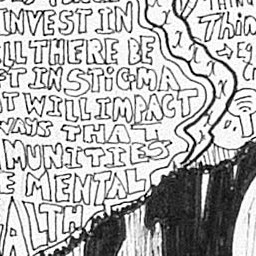 INVEST IN
ILL THERE BE
FT IN STIGMA
T WILL IMPACT
WAYS THAT
MMUNITIES
E MENTAL
ALTH
THIN
Thin
→ Eg